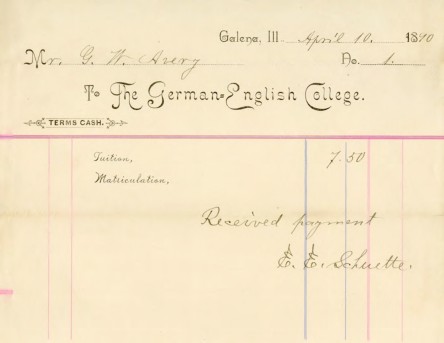 Galena, Ill. April 10. 1890
Mr. G. W. Avery No. 1.
To The German=English College.
TERMS CASH.
Tuition, 7.50
Matriculation,
Received payment
E. E. Schuette.